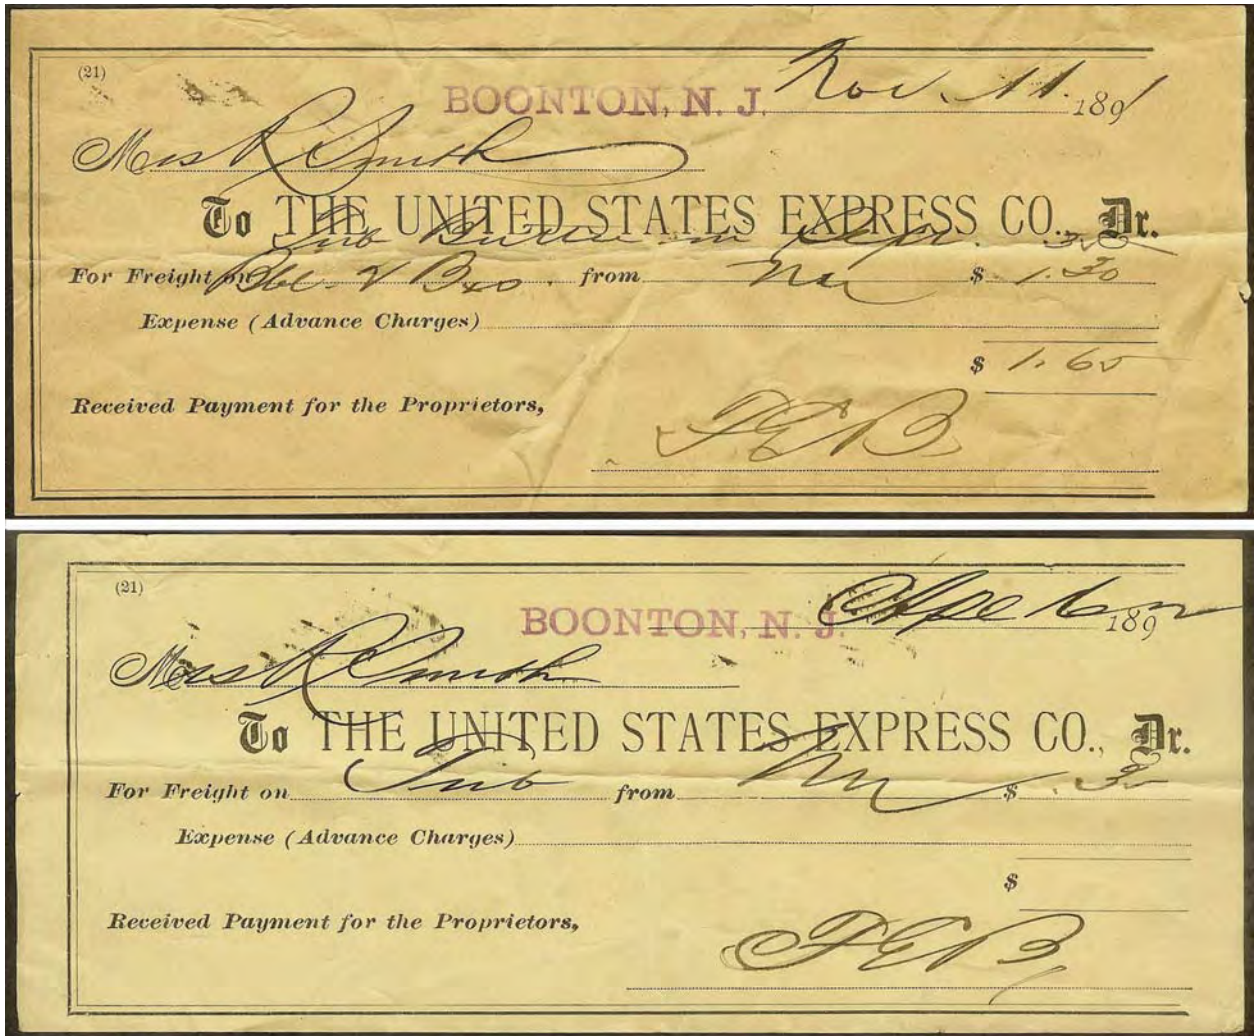 (21)
BOONTON, N. J. Nov. 11. 1891
Mrs R Smith
To THE UNITED STATES EXPRESS CO., Dr.
Tub Butter in Sept.
For Freight on Bbl & Bxs. from $ 1.30
Expense (Advance Charges)
$ 1.65
Received Payment for the Proprietors,
F E B
(21)
BOONTON, N. J. 189
Mrs R Smith
To THE UNITED STATES EXPRESS CO., Dr.
For Freight on Tub from $
Expense (Advance Charges)
$
Received Payment for the Proprietors,
F E B